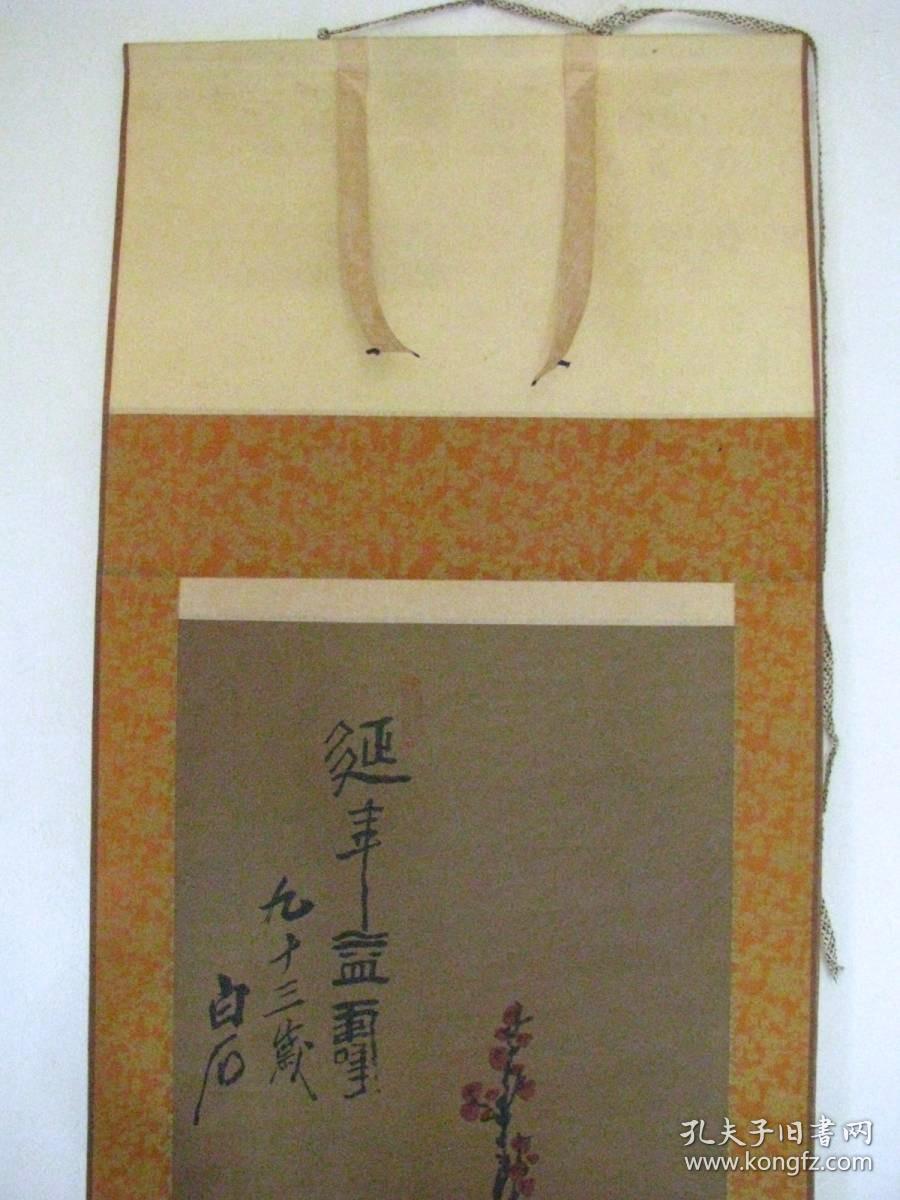 延年益壽
九十三歲
白石
孔夫子旧書网
www.kongfz.com